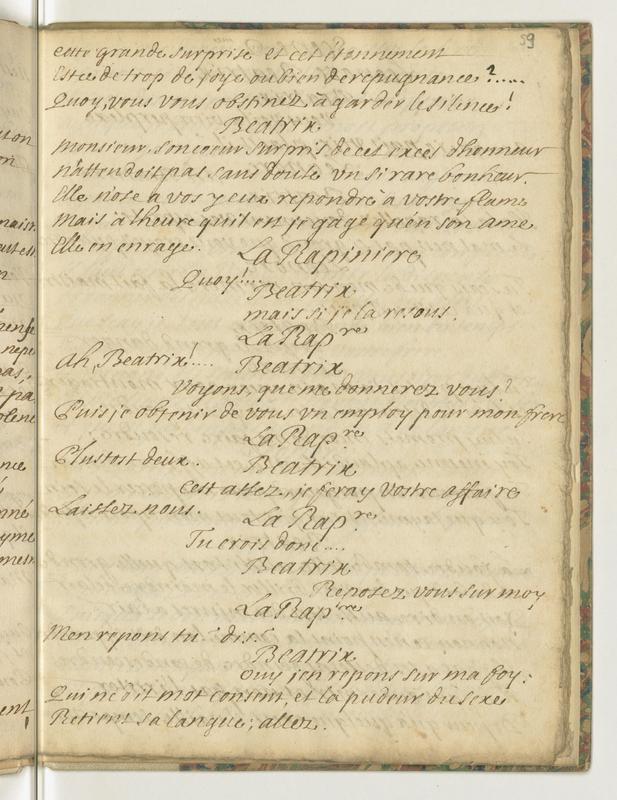 59
cette grande surprise et cet étonnement
Estce de trop de joye ou bien de repugnance ?.....
Quoy, vous vous obstinez à garder le silence !
Beatrix
Monsieur, son coeur surpris de cet excés d'honneur
n'attendoit pas sans doute vn si rare bonheur.
Elle n'ose a vos yeux repondre à vostre flame
Mais à lheure quil est je gage qu'en son ame
Elle en enrage.
La Rapiniere
Quoy !...
Beatrix
mais si je la resous.
La Rap.re
Ah, Beatrix !....
Beatrix
Voyons, que me donnerez vous ?
Puis je obtenir de vous vn employ pour mon frere
La Rap.re
Plustost deux.
Beatrix
C'est assez, je feray vostre affaire
Laissez nous.
La Rap.re
Tu crois donc....
Beatrix
Reposez vous sur moy
La Rap.re
M'en repons tu ? dis.
Beatrix
ouy j'en repons sur ma foy :
Qui ne dit mot consent, et la pudeur du sexe
Retient sa langue ; allez.